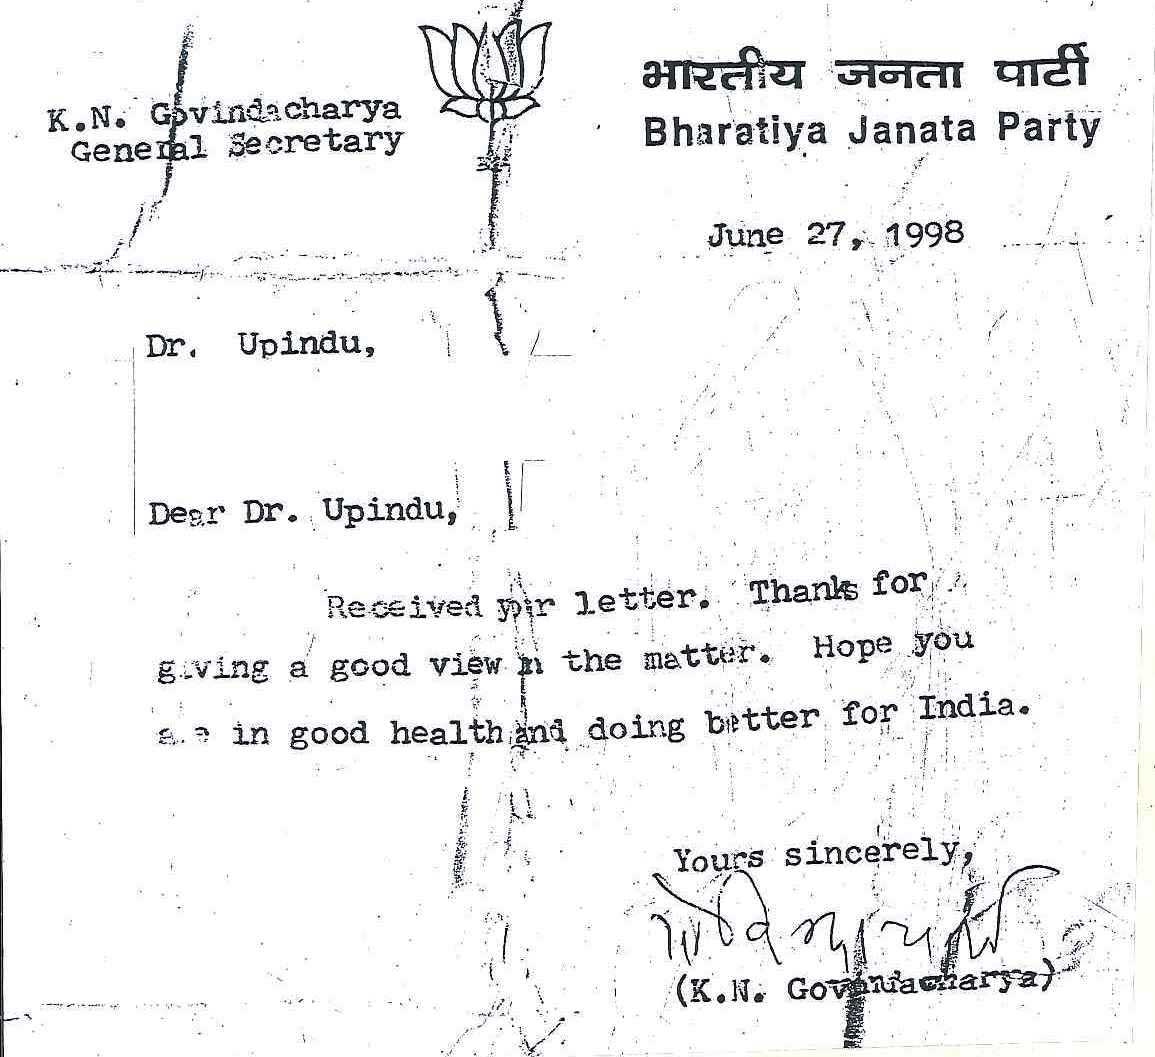 K.N. Govindacharya
General Secretary
भारतीय जनता पार्टी
Bharatiya Janata Party
June 27, 1998
Dr. Upindu,
Dear Dr. Upindu,
Received your letter. Thanks for
giving a good view in the matter. Hope you
are in good health and doing better for India.
Yours sincerely,
गोविन्दाचार्य
(K.N. Govindacharya)